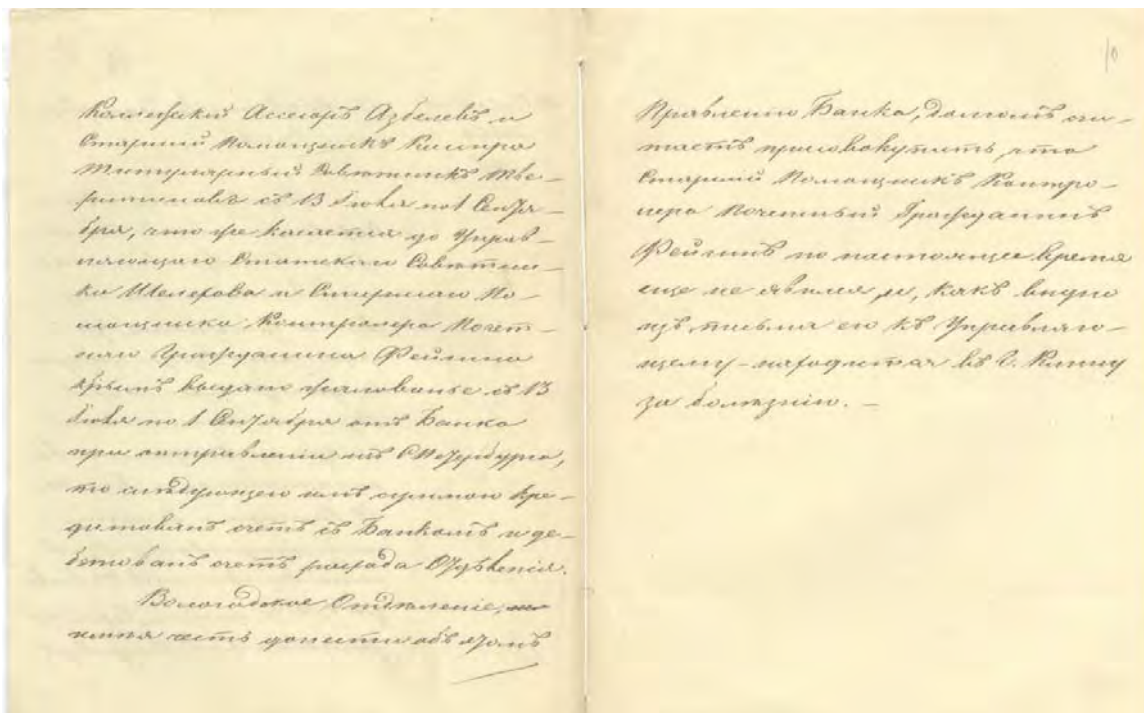 Коллежскій Ассесоръ Азбелевъ и
Старшій Помощникъ Кассира
Титулярный Совѣтникъ
съ 13 Іюля по 1 Сентя-
бря, что же касается до Управ-
ляющаго Статскаго Совѣтни-
ка и Старшаго По-
мощника Контролера Почет-
наго Гражданина Фейгина
выдано жалованье съ 13
Іюля по 1 Сентября отъ Банка
при отправленіи изъ С Петербурга,
то слѣдующею имъ суммою кре-
дитованъ счетъ съ Банкомъ и де-
бетованъ счетъ расхода Отдѣленія.
Вологодское Отдѣленіе,
имѣя честь донести объ этомъ
10
Правленію Банка, долгомъ счи-
таетъ присовокупить, что
Старшій Помощникъ Контро-
лера Почетный Гражданинъ
Фейгинъ по настоящее время
еще не явился, и, какъ видно
изъ письма его къ Управляю-
щему - находится въ г. Клину
за болѣзнію. —